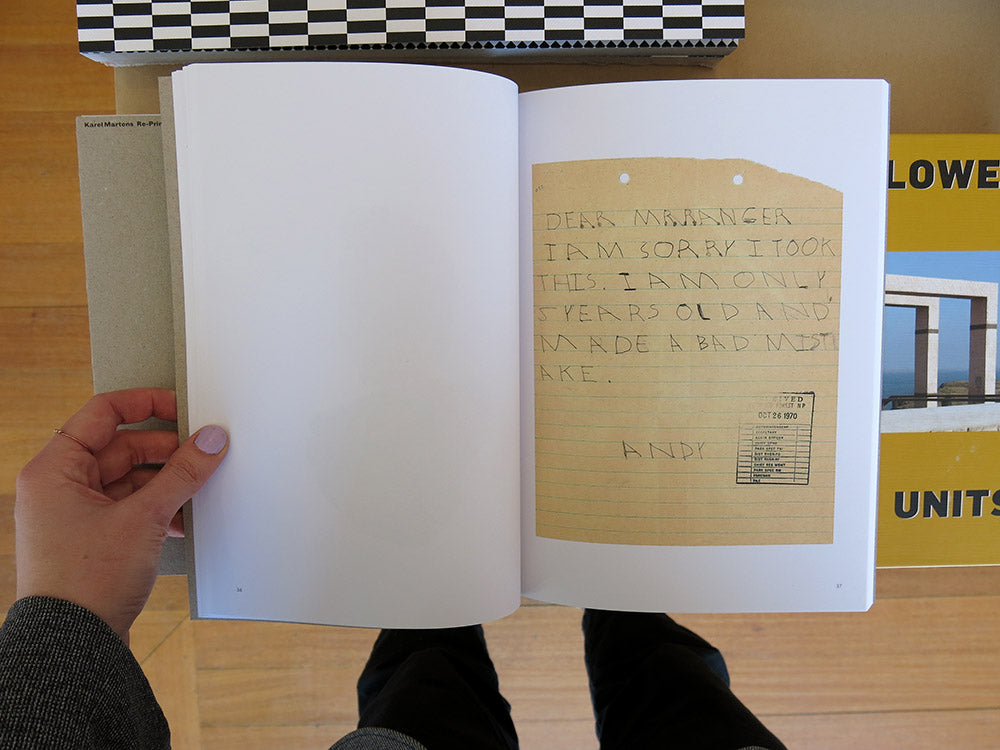 Karel Martens Re-Prin
DEAR MR RANGER
I AM SORRY I TOOK
THIS. I AM ONLY
5 YEARS OLD AND
MADE A BAD MIST
AKE.
ANDY
IVED
FOREST NP
OCT 26 1970
36
37
LOWE
UNITS